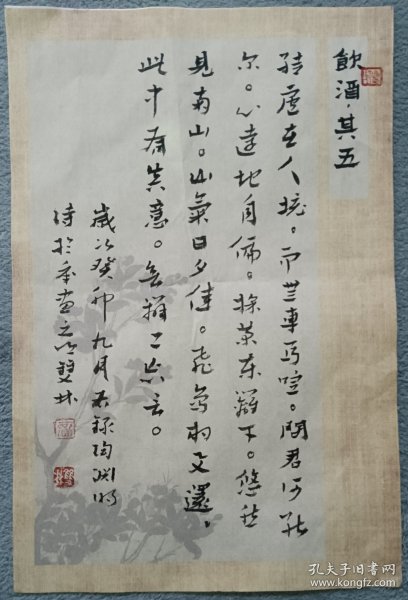 飲酒·其五
結廬在人境。而無車馬喧。問君何能
尔。心遠地自偏。採菊東籬下。悠然
見南山。山氣日夕佳。飛鳥相与還。
此中有真意。欲辨已忘言。
歲次癸卯九月 录陶渊明
詩於
孔夫子旧书网
www.kongfz.com